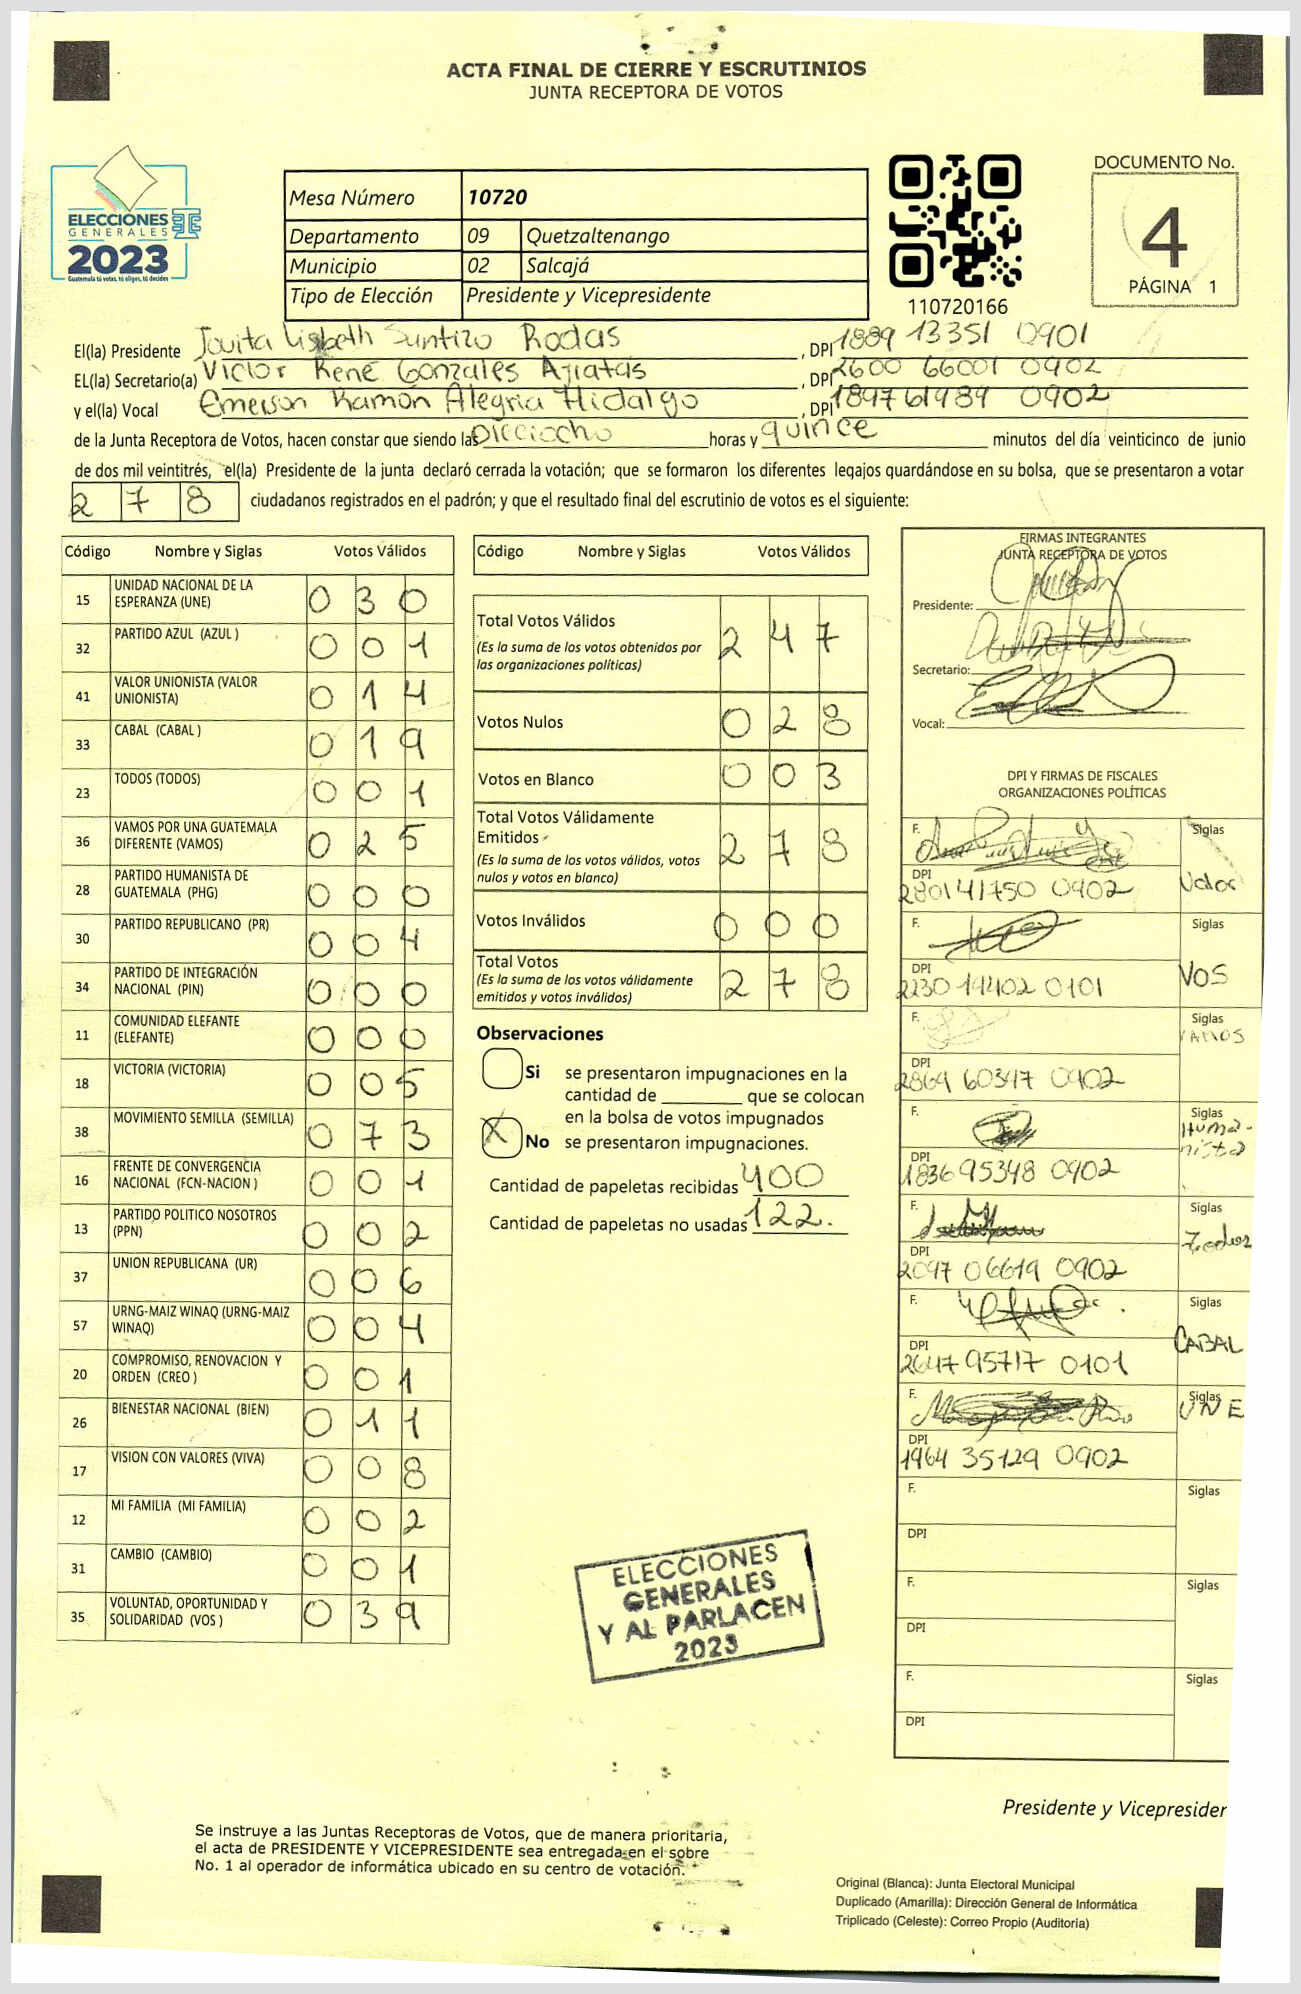 ACTA FINAL DE CIERRE Y ESCRUTINIOS
JUNTA RECEPTORA DE VOTOS
ELECCIONES
GENERALES
2023
Guatemala tú votas, tú eliges, tú decides
Mesa Número 10720
Departamento 09 Quetzaltenango
Municipio 02 Salcajá
Tipo de Elección Presidente y Vicepresidente
110720166
DOCUMENTO No.
4
PÁGINA 1
El(la) Presidente Jovita Lisbeth Suntizo Rodas, DPI 1889 13351 0901
EL(la) Secretario(a) Victor Rene Gonzales Ajiatas, DPI 2600 66001 0902
y el(la) Vocal Emerson Ramón Alegria Hidalgo, DPI 1897 61989 0902
de la Junta Receptora de Votos, hacen constar que siendo las Dieciocho horas y quince minutos del día veinticinco de junio
de dos mil veintitrés, el(la) Presidente de la junta declaró cerrada la votación; que se formaron los diferentes legajos quardándose en su bolsa, que se presentaron a votar
2 7 8 ciudadanos registrados en el padrón; y que el resultado final del escrutinio de votos es el siguiente:
Código Nombre y Siglas Votos Válidos
15 UNIDAD NACIONAL DE LA ESPERANZA (UNE) 0 3 0
32 PARTIDO AZUL (AZUL ) 0 0 1
41 VALOR UNIONISTA (VALOR UNIONISTA) 0 1 4
33 CABAL (CABAL ) 0 1 9
23 TODOS (TODOS) 0 0 1
36 VAMOS POR UNA GUATEMALA DIFERENTE (VAMOS) 0 2 5
28 PARTIDO HUMANISTA DE GUATEMALA (PHG) 0 0 0
30 PARTIDO REPUBLICANO (PR) 0 0 4
34 PARTIDO DE INTEGRACIÓN NACIONAL (PIN) 0 0 0
11 COMUNIDAD ELEFANTE (ELEFANTE) 0 0 0
18 VICTORIA (VICTORIA) 0 0 5
38 MOVIMIENTO SEMILLA (SEMILLA) 0 7 3
16 FRENTE DE CONVERGENCIA NACIONAL (FCN-NACION ) 0 0 1
13 PARTIDO POLITICO NOSOTROS (PPN) 0 0 2
37 UNION REPUBLICANA (UR) 0 0 6
57 URNG-MAIZ WINAQ (URNG-MAIZ WINAQ) 0 0 4
20 COMPROMISO, RENOVACION Y ORDEN (CREO ) 0 0 1
26 BIENESTAR NACIONAL (BIEN) 0 1 1
17 VISION CON VALORES (VIVA) 0 0 8
12 MI FAMILIA (MI FAMILIA) 0 0 2
31 CAMBIO (CAMBIO) 0 0 1
35 VOLUNTAD, OPORTUNIDAD Y SOLIDARIDAD (VOS ) 0 3 9
Código Nombre y Siglas Votos Válidos
Total Votos Válidos 2 4 7
(Es la suma de los votos obtenidos por
las organizaciones políticas)
Votos Nulos 0 2 8
Votos en Blanco 0 0 3
Total Votos Válidamente
Emitidos 2 7 8
(Es la suma de los votos válidos, votos
nulos y votos en blanco)
Votos Inválidos 0 0 0
Total Votos 2 7 8
(Es la suma de los votos válidamente
emitidos y votos inválidos)
Observaciones
Si se presentaron impugnaciones en la
cantidad de ________ que se colocan
en la bolsa de votos impugnados
X No se presentaron impugnaciones.
Cantidad de papeletas recibidas 400
Cantidad de papeletas no usadas 122.
ELECCIONES
GENERALES
Y AL PARLACEN
2023
FIRMAS INTEGRANTES
JUNTA RECEPTORA DE VOTOS
Presidente:
Secretario:
Vocal:
DPI Y FIRMAS DE FISCALES
ORGANIZACIONES POLÍTICAS
F. Siglas
DPI 2801 41750 0902
F. Siglas VOS
DPI 2230 19402 0101
F. Siglas VAMOS
DPI 2869 60347 0902
F. Siglas Humanista
DPI 1836 95348 0902
F. Siglas
DPI 2097 06619 0902
F. Siglas CABAL
DPI 2647 95717 0101
F. Siglas UNE
DPI 1964 35129 0902
F. Siglas
DPI
F. Siglas
DPI
F. Siglas
DPI
Presidente y Vicepresiden
Se instruye a las Juntas Receptoras de Votos, que de manera prioritaria,
el acta de PRESIDENTE Y VICEPRESIDENTE sea entregada en el sobre
No. 1 al operador de informática ubicado en su centro de votación.
Original (Blanca): Junta Electoral Municipal
Duplicado (Amarilla): Dirección General de Informática
Triplicado (Celeste): Correo Propio (Auditoria)